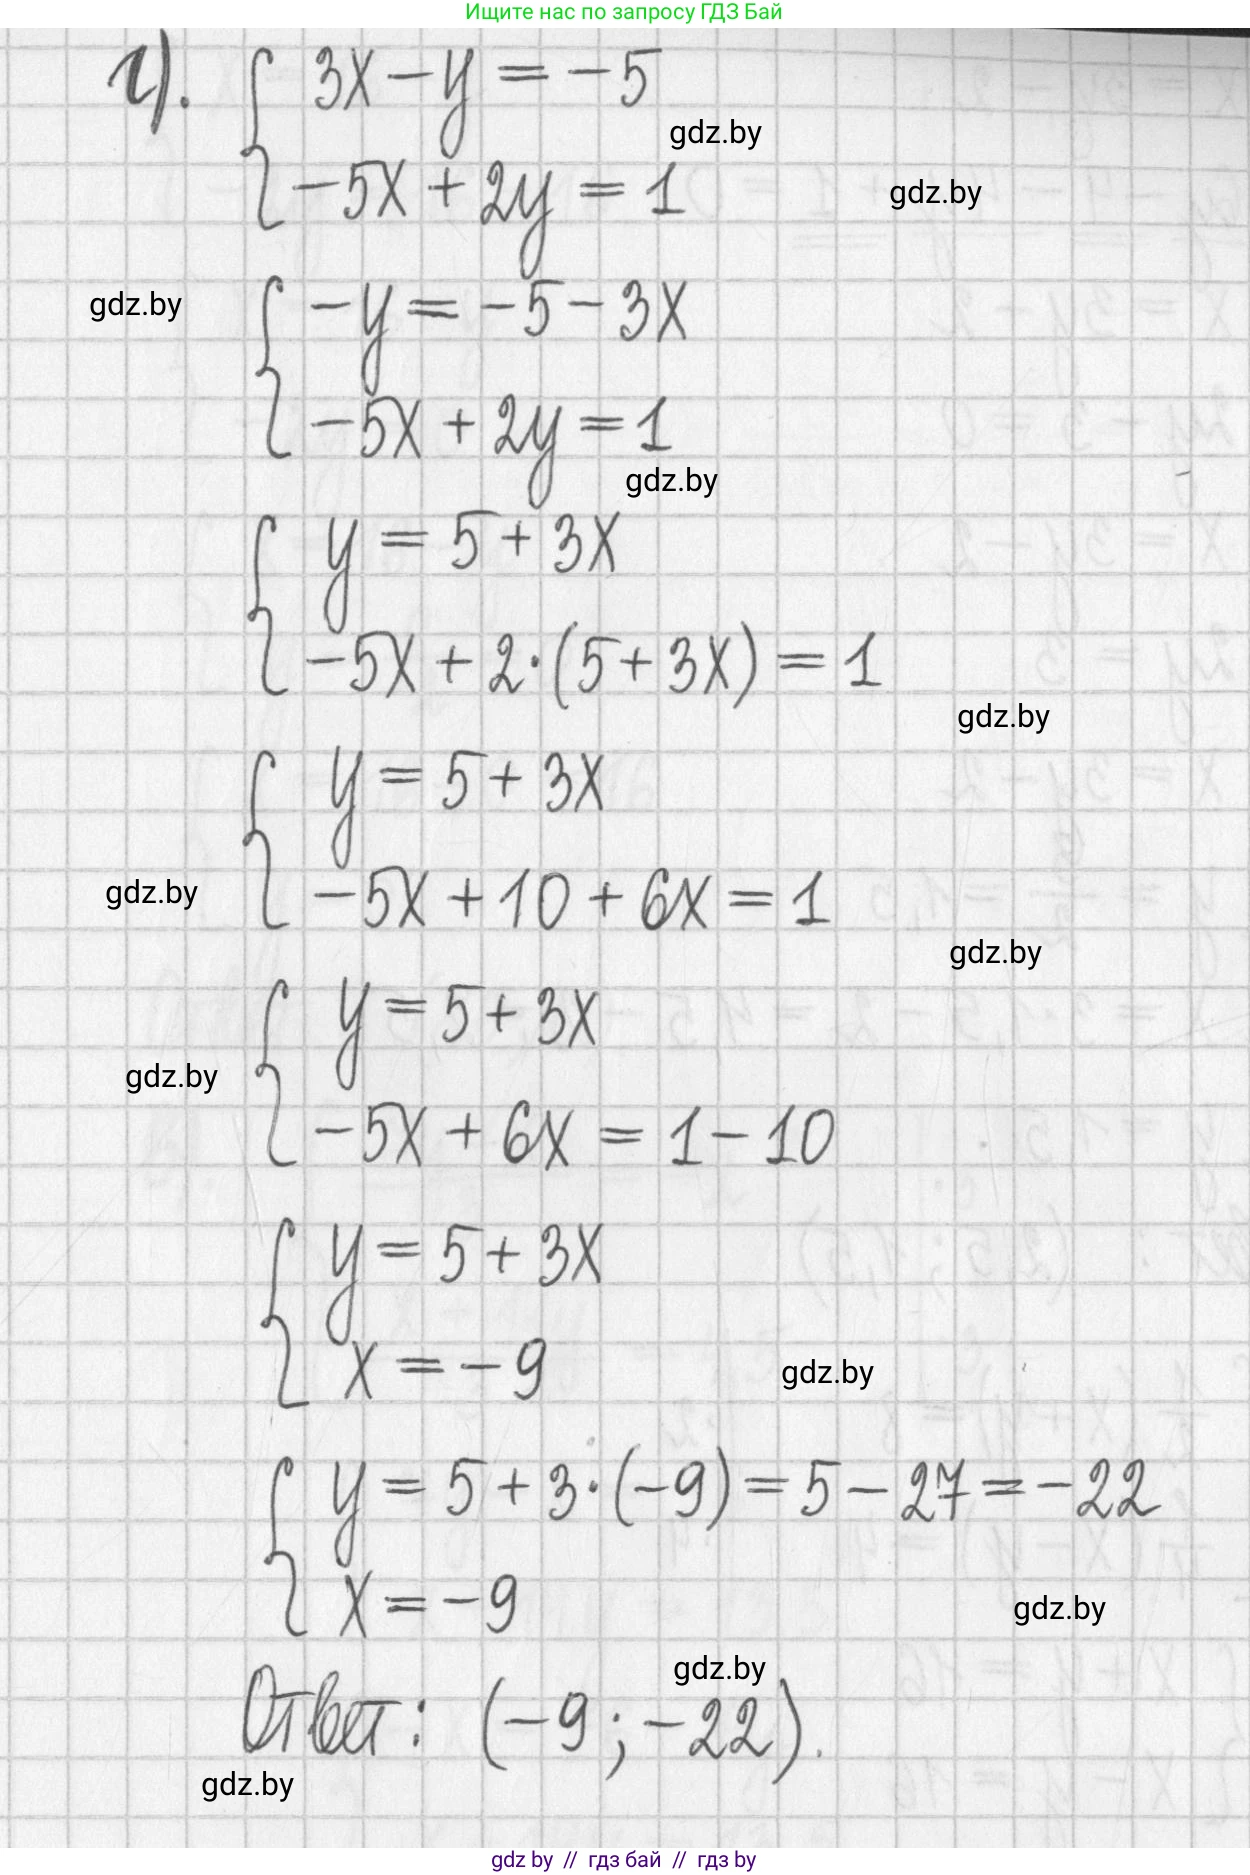 Ищите нас по запросу ГДЗ Бай
г). { 3x - y = -5
gdz.by
-5x + 2y = 1
gdz.by
gdz.by
{ -y = -5 - 3x
-5x + 2y = 1
gdz.by
{ y = 5 + 3x
-5x + 2·(5 + 3x) = 1
gdz.by
{ y = 5 + 3x
gdz.by
-5x + 10 + 6x = 1
gdz.by
{ y = 5 + 3x
gdz.by
-5x + 6x = 1 - 10
{ y = 5 + 3x
x = -9
gdz.by
{ y = 5 + 3·(-9) = 5 - 27 = -22
x = -9
gdz.by
gdz.by
Ответ: (-9; -22).
gdz.by
gdz by // гдз бай // гдз by